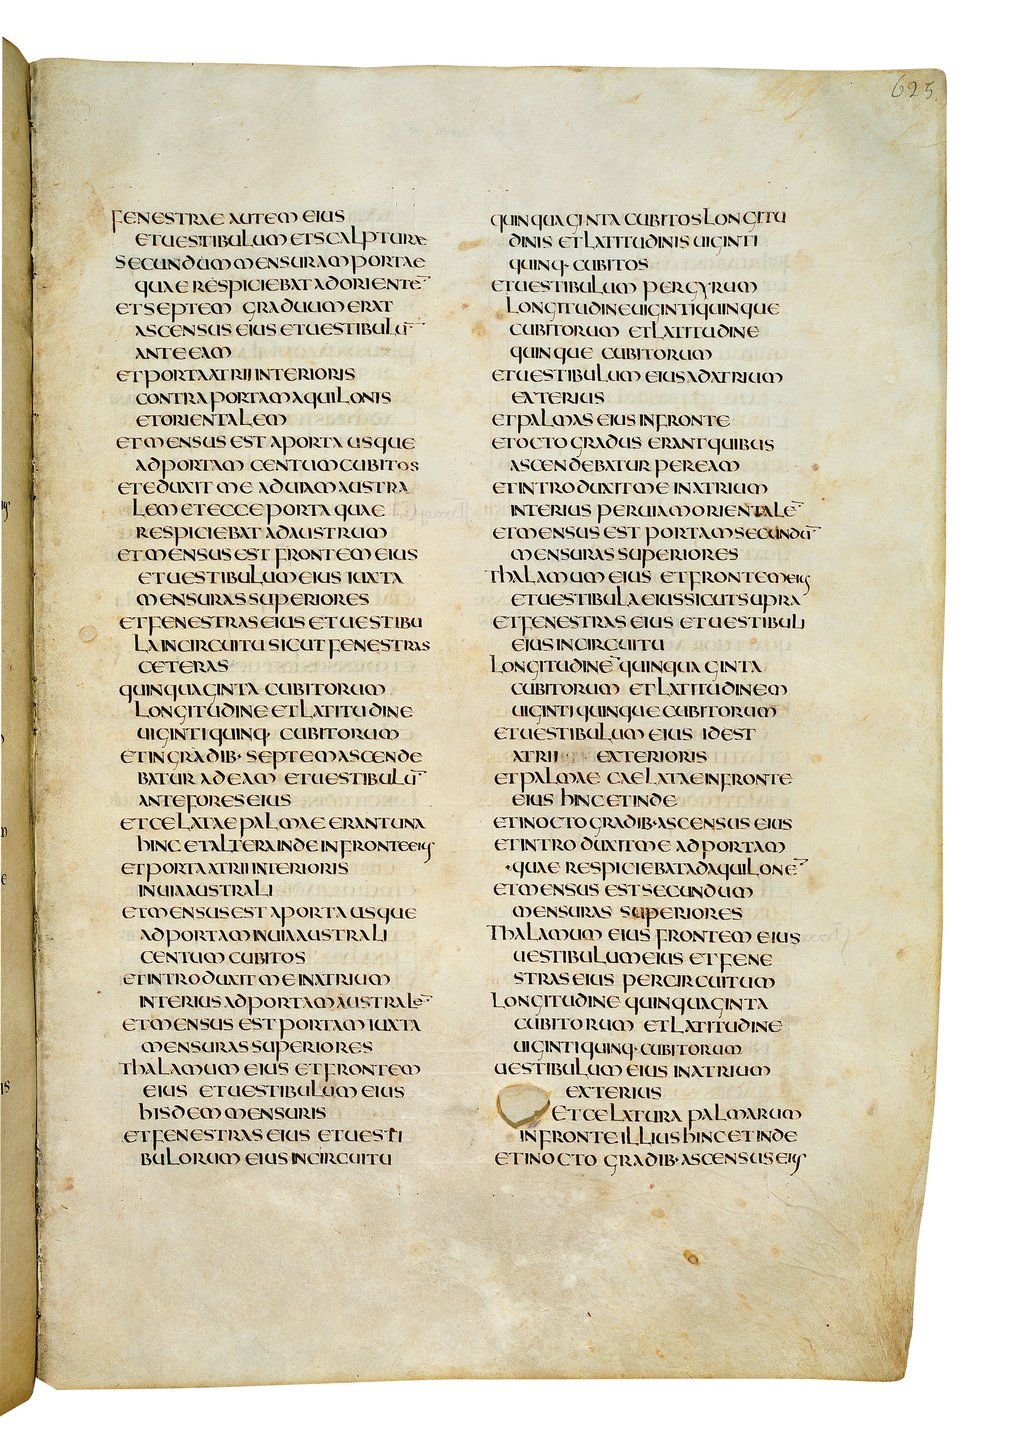 625
FENESTRAE AUTEM EIUS
ETUESTIBULUM ETSCALPTURAE
SECUNDUM MENSURAM PORTAE
QUAE RESPICIEBAT ADORIENTĒ
ETSEPTEM GRADUUM ERAT
ASCENSUS EIUS ETUESTIBULŪ
ANTE EAM
ETPORTA ATRII INTERIORIS
CONTRA PORTAM AQUILONIS
ETORIENTALEM
ETMENSUS EST APORTA USQUE
ADPORTAM CENTUM CUBITOS
ETEDUXIT ME ADUIAM AUSTRA
LEM ETECCE PORTA QUAE
RESPICIEBAT ADAUSTRUM
ETMENSUS EST FRONTEM EIUS
ETUESTIBULUM EIUS IUXTA
MENSURAS SUPERIORES
ETFENESTRAS EIUS ETUESTIBU
LA INCIRCUITU SICUT FENESTRAS
CETERAS
QUINQUAGINTA CUBITORUM
LONGITUDINE ETLATITUDINE
UIGINTI QUINQ· CUBITORUM
ETINGRADIB· SEPTEM ASCENDE
BATUR ADEAM ETUESTIBULŪ
ANTE FORES EIUS
ETCELATAE PALMAE ERANT UNA
HINC ETALTERA INDE INFRONTE EIUS
ETPORTA ATRII INTERIORIS
INUIA AUSTRALI
ETMENSUS EST APORTA USQUE
ADPORTAM INUIA AUSTRALI
CENTUM CUBITOS
ETINTRODUXIT ME INATRIUM
INTERIUS ADPORTAM AUSTRALĒ
ETMENSUS EST PORTAM IUXTA
MENSURAS SUPERIORES
THALAMUM EIUS ETFRONTEM
EIUS ETUESTIBULUM EIUS
HISDEM MENSURIS
ETFENESTRAS EIUS ETUESTI
BULORUM EIUS INCIRCUITU
QUINQUAGINTA CUBITOS LONGITU
DINIS ETLATITUDINIS UIGINTI
QUINQ· CUBITOS
ETUESTIBULUM PERGYRUM
LONGITUDINE UIGINTIQUINQUE
CUBITORUM ETLATITUDINE
QUINQUE CUBITORUM
ETUESTIBULUM EIUS ADATRIUM
EXTERIUS
ETPALMAS EIUS INFRONTE
ETOCTO GRADUS ERANT QUIBUS
ASCENDEBATUR PEREAM
ETINTRODUXIT ME INATRIUM
INTERIUS PERUIAM ORIENTALĒ
ETMENSUS EST PORTAM SECUNDŪ
MENSURAS SUPERIORES
THALAMUM EIUS ETFRONTEM EIUS
ETUESTIBULA EIUS SICUT SUPRA
ETFENESTRAS EIUS ETUESTIBULI
EIUS INCIRCUITU
LONGITUDINĒ QUINQUAGINTA
CUBITORUM ETLATITUDINEM
UIGINTI QUINQUE CUBITORUM
ETUESTIBULUM EIUS IDEST
ATRII EXTERIORIS
ETPALMAE CAELATAE INFRONTE
EIUS HINC ETINDE
ETINOCTO GRADIB· ASCENSUS EIUS
ETINTRODUXIT ME ADPORTAM
QUAE RESPICIEBAT ADAQUILONĒ
ETMENSUS EST SECUNDUM
MENSURAS SUPERIORES
THALAMUM EIUS FRONTEM EIUS
UESTIBULUM EIUS ETFENE
STRAS EIUS PERCIRCUITUM
LONGITUDINE QUINQUAGINTA
CUBITORUM ETLATITUDINE
UIGINTI QUINQ· CUBITORUM
UESTIBULUM EIUS INATRIUM
EXTERIUS
ETCELATURA PALMARUM
INFRONTE ILLIUS HINC ETINDE
ETINOCTO GRADIB· ASCENSUS EIUS